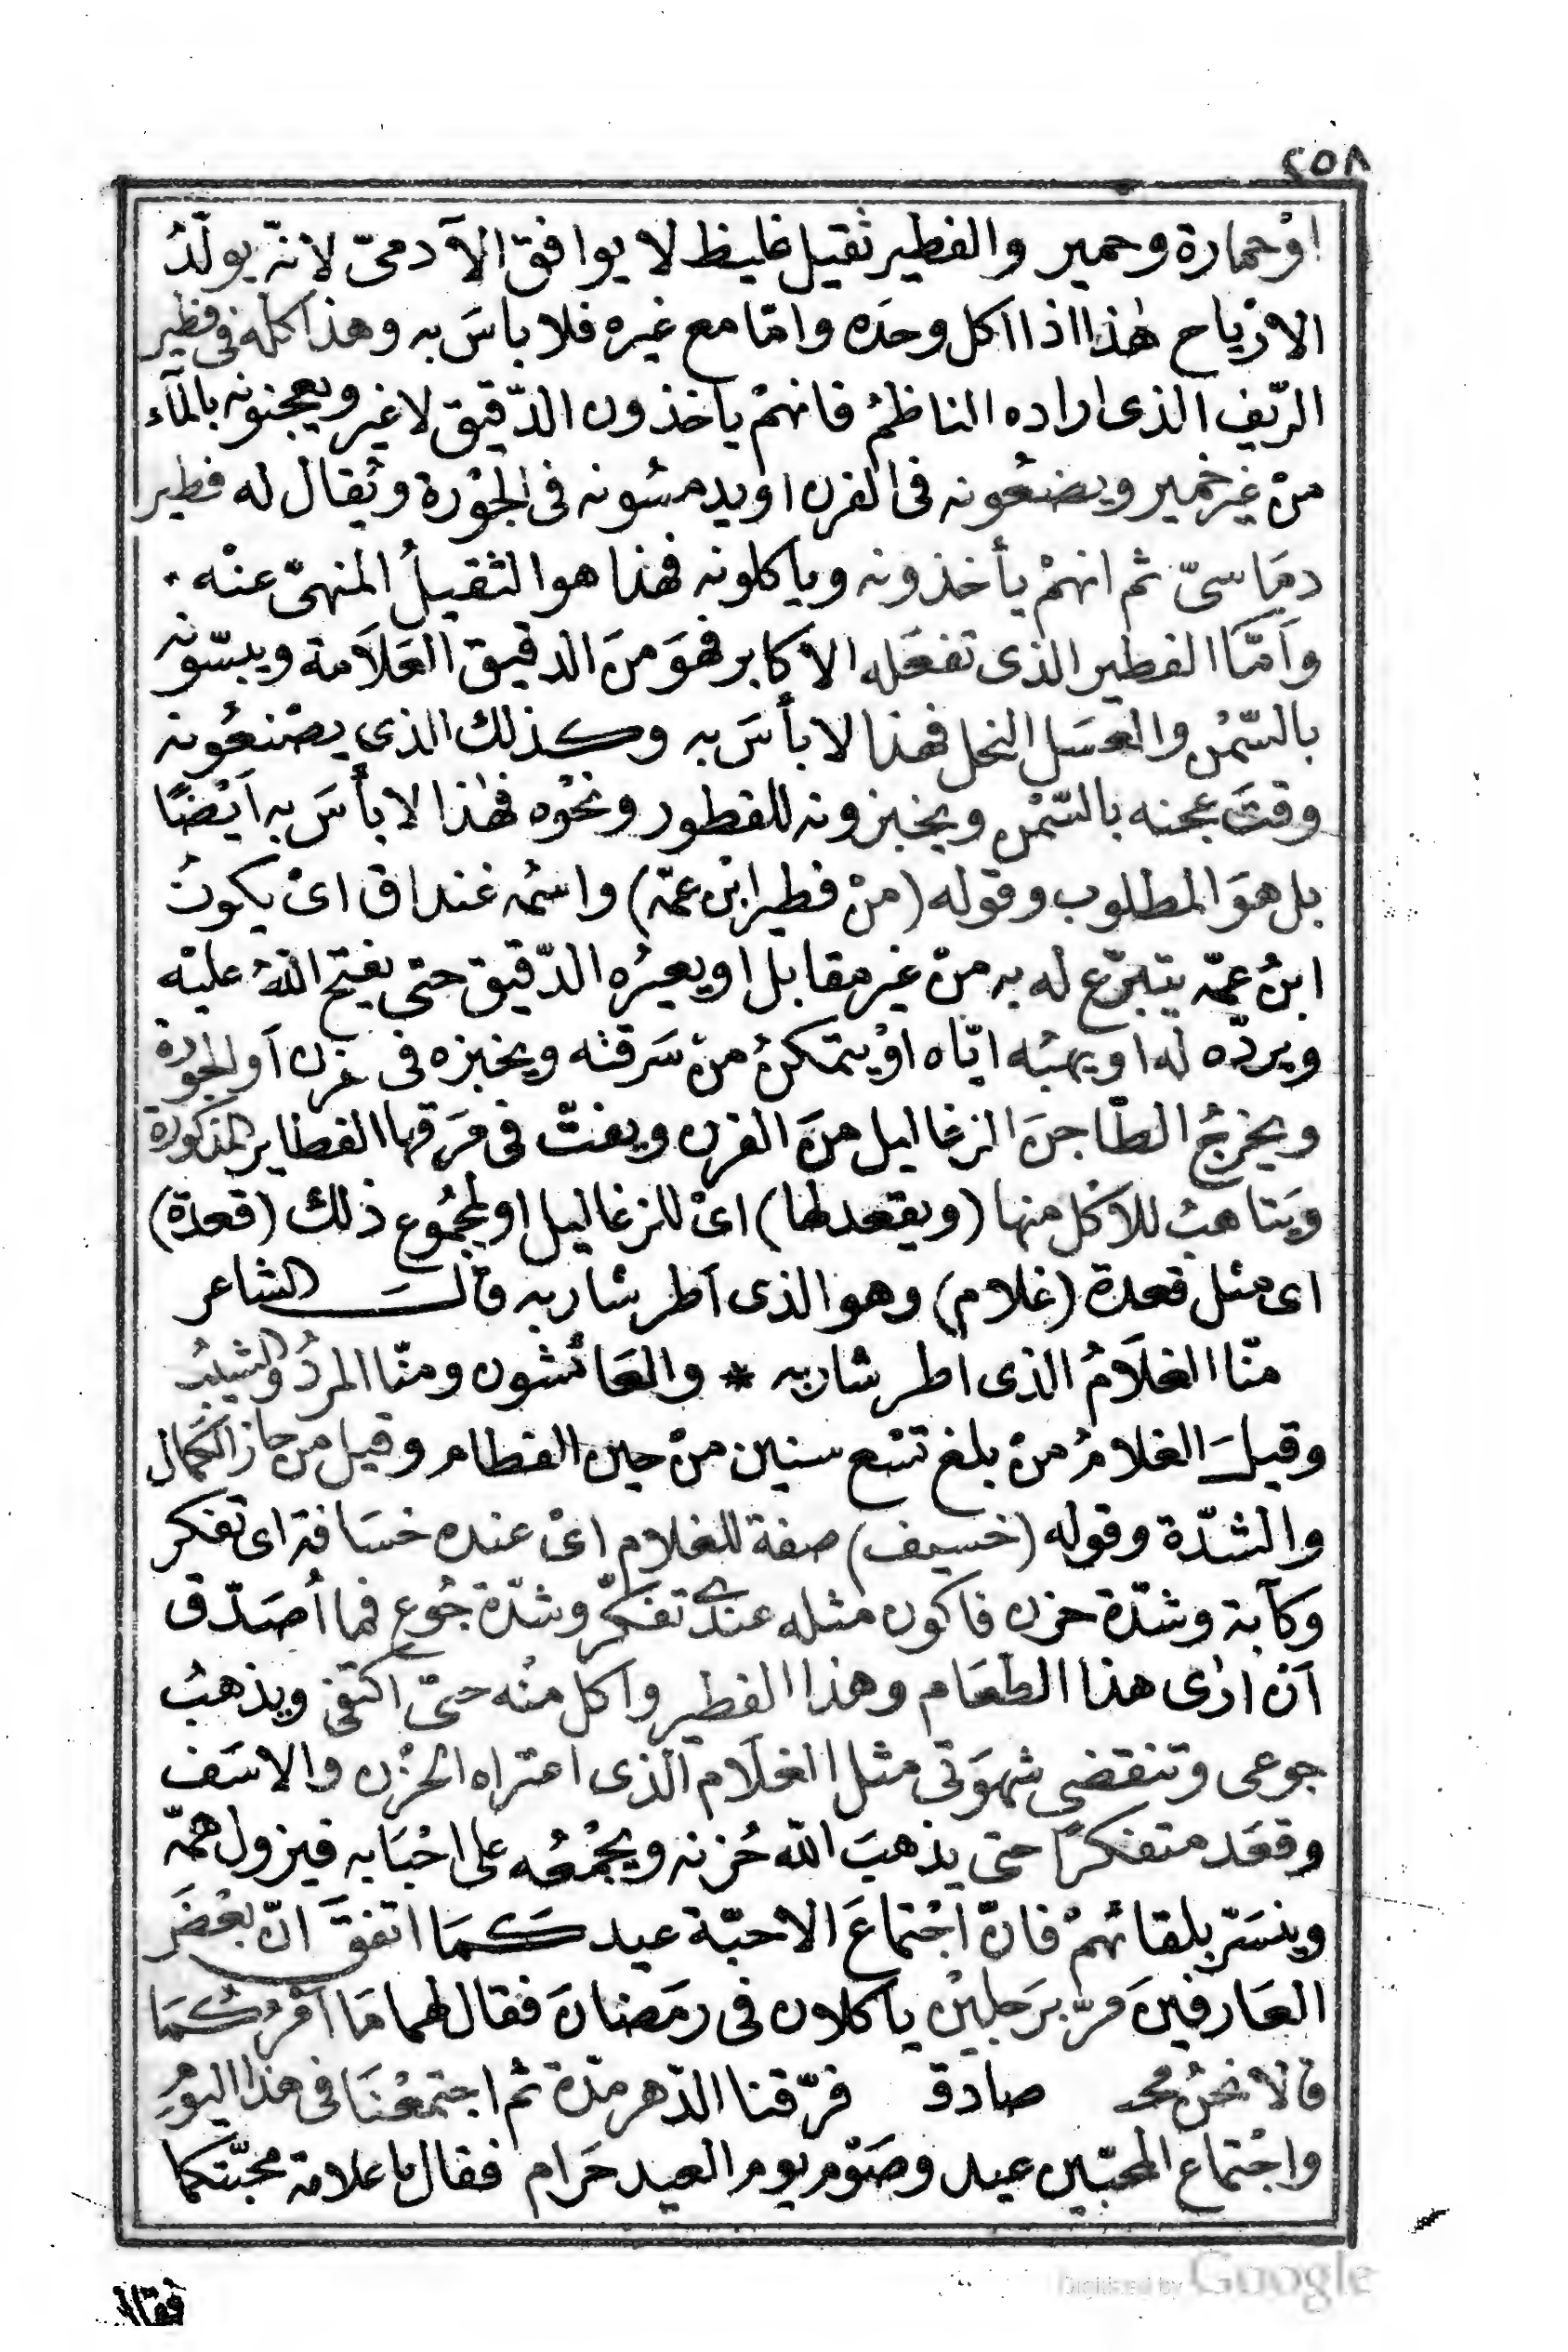 ٢٥٨
اوْحمارة وحمير والفطير ثقيل غليظ لا يوافق الآدمىّ لانّه يولّدُ
الارْياح هٰذا اذا اكل وحدَه وامّا مع غيره فلا باسَ به وهذا كلّه فى فطير
الرّيف الذى اراده الناظمُ فانهمْ ياخذون الدّقيق لا غير ويعجنونه بالمآء
منْ غير خمير ويضعُونه فى الفرن او يدمسُونه فى الجوْرة ويُقال له فطير
دمَاسىّ ثم انهمْ يأخذونه وياكلونه فهٰذا هو الثقيلُ المنهىّ عنْه ٠
وَامّا الفطير الذى تفعَله الاكابر فهوَ منَ الدقيق العَلَامة ويبسّونه
بالسّمْن والعسَل النحل فهٰذا لا بأسَ به وكذلك الذي يصْنعُونه
وقتَ عجنه بالسّمْن ويخبزونه للفطور ونحْوه فهٰذا لا بأسَ به اَيْضًا
بل هوَ المطلوب وقوله (منْ فطير ابْن عمّه) واسْمُه غنداق اىْ يكونُ
ابنُ عمّه يتبرّع له به منْ غير مقابل او يعيرُه الدّقيق حتى يفتح اللّهُ عليْه
ويردّه له او يهبُه ايّاه اوْ يتمكنُ منْ سَرقته ويخبزه فى فرن اَو الجورة
ويخرجُ الطّاجنَ الزغاليل منَ الفرن ويفتّ فى مَرقها الفطاير المذكورة
وَيتاهبُ للاكل منها (ويقعد لها) اىْ للزغاليل او لمجمُوع ذلك (قعدة)
اى مثل قعدة (غلام) وهو الذى اَطر شاربه قالَ الشاعر
منّا الغلَامُ الذى اطر شاربه * والعَائشون ومنّا المردُ والشيبُ
وقيلَ الغلامُ منْ بلغ تسْع سنين منْ حين الفطام وقيل من حاز الكمال
والشدّة وقوله (خسيف) صفة للغلام اىْ عنده خسَافة اى تفكر
وكآبة وشدّة حزن فاكون مثله عندى تفكّر وشدّة جُوع فما اُصَدّق
اَنْ ارٰى هذا الطعَام وهذا الفطير واكل منْه حتىّ اكتفى ويذهبُ
جوعى وتنقضى شهوَتى مثل الغلَام الّذى اعتراه الحزْن والاسَف
وقعَد متفكرًا حتى يذهبَ اللّه حُزنه ويجْمعُه على احْبَابه فيزول همّه
وينسَرّ بلقائهمْ فانّ اجْتماعَ الاحبّة عيد كَمَا اتفقَ انّ بعْضَ
العَارفينَ مَرّ برَجليْن ياكلان فى رمَضانَ فقال لهما مَا اَمْرُكُمَا
قالا نحنُ محـ صادق فرّقنا الدّهر مدّة ثم اجتمعْنَا فى هذا اليوْمِ
واجْتماع المحبّين عيد وصَوْم يوم العيد حَرام فقال ما علامة محبّتكما
فقال
Digitized by Google